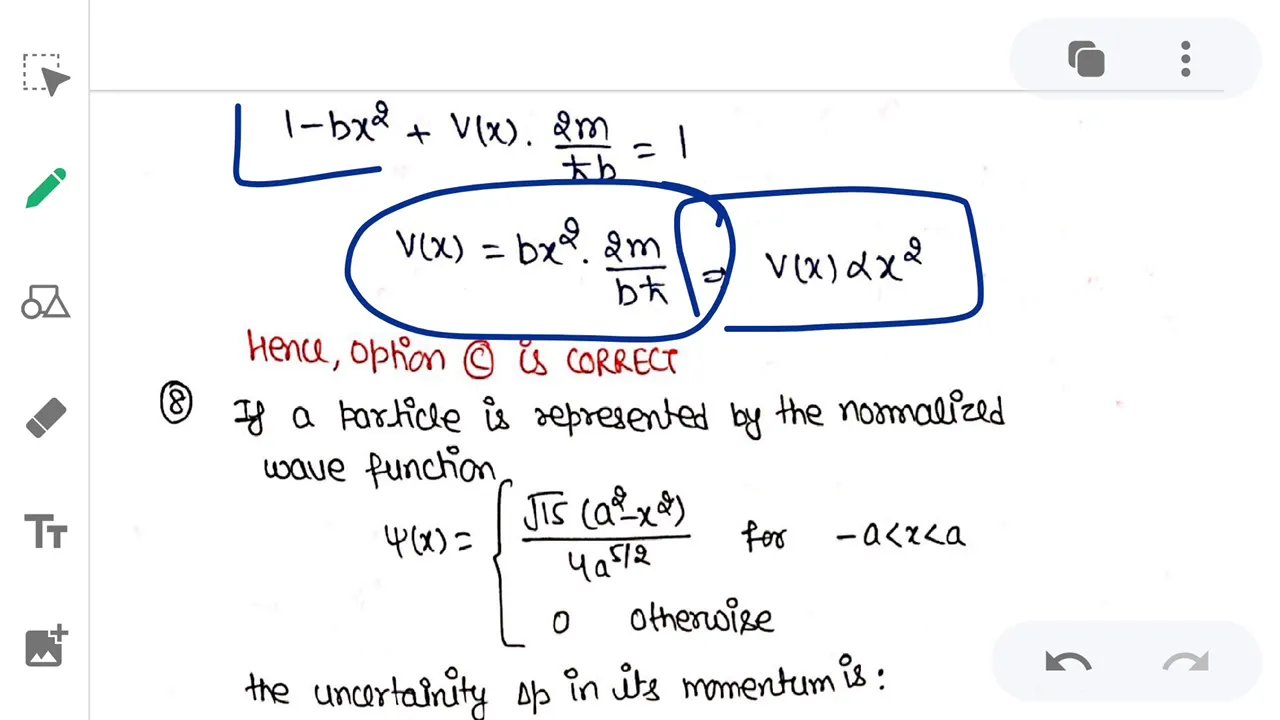 1-bx² + V(x). 2m/ħb = 1
V(x) = bx². 2m/bħ ⇒ V(x) α x²
Hence, Option Ⓒ is CORRECT
⑧ If a particle is represented by the normalized
wave function
Ψ(x) = { √15 (a²-x²)/4a^5/2 for -a<x<a
0 otherwise
the uncertainity Δp in its momentum is:
TT